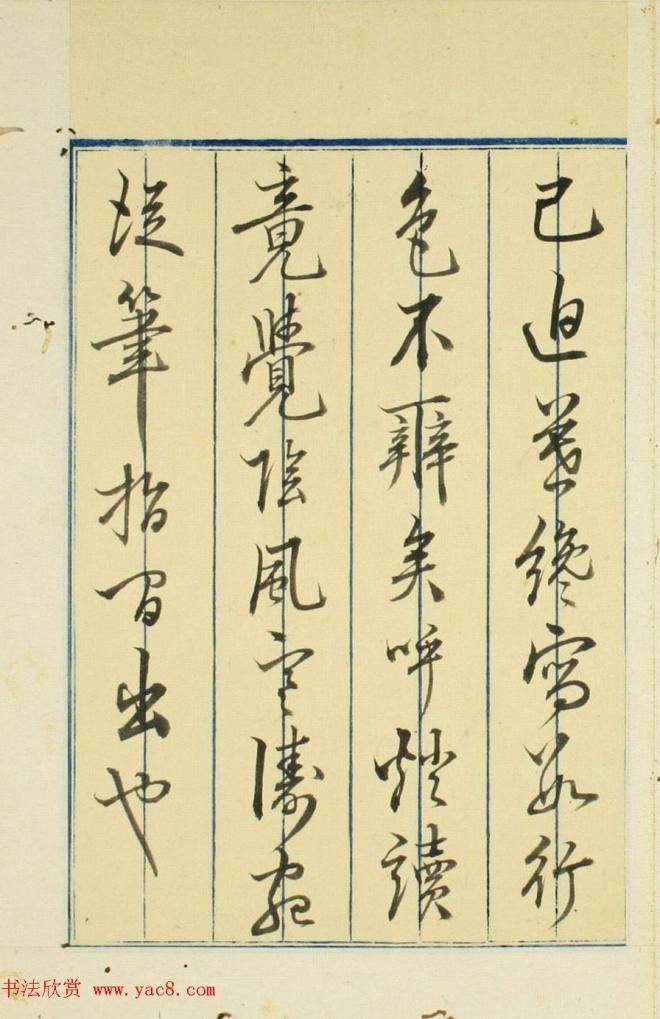 已迫暮纔寫數行
色不辨矣呼燈讀
竟覺陰風寒濤宛
從筆指間出也
书法欣赏 www.yac8.com